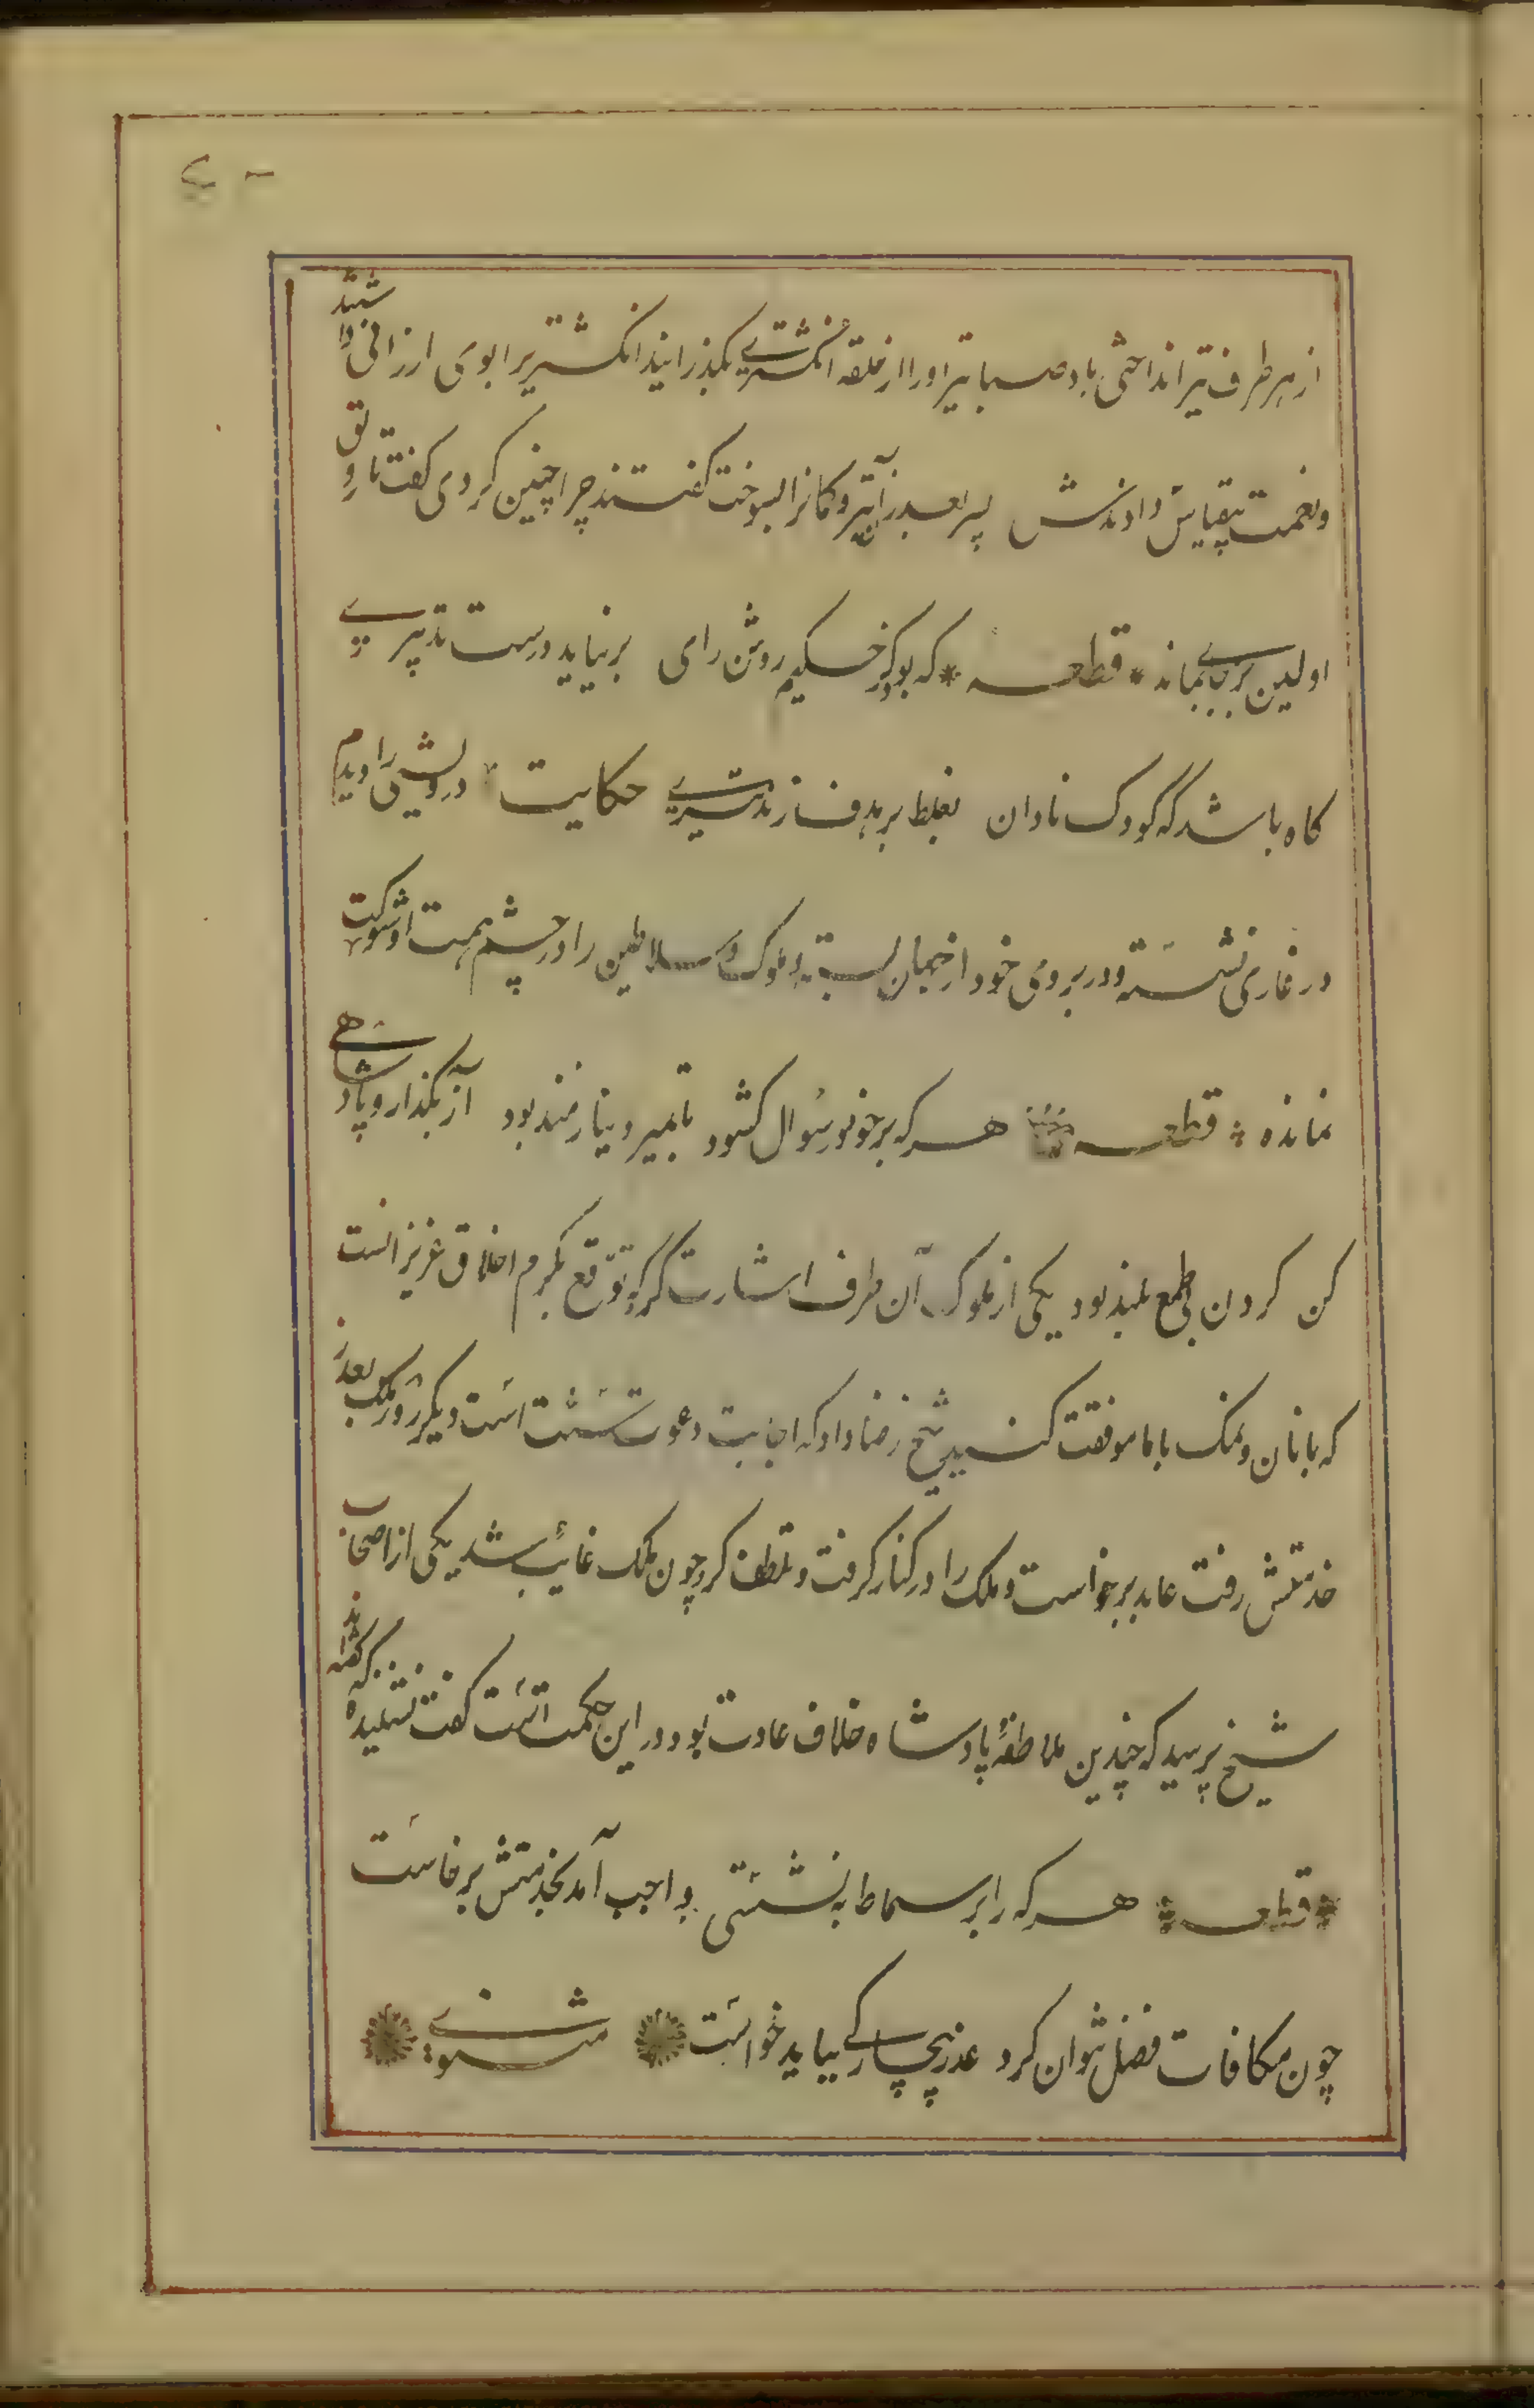 از هر طرف تیر انداختی باد صبا تیر او را از حلقه انگشتری بگذرانید انگشتری را بوی ارزانی داشتند
و نعمت بیقیاس دادندش پسر بعد از آن تیر و کمانرا بسوخت گفتند چرا چنین کردی گفت تا رونق
اولین بر جای بماند قطعه که بود کز حکیم روشن رای بر نیاید درست تدبیری
گاه باشد که کودک نادان بغلط بر هدف زند تیری حکایت درویشی را دیدم
در غاری نشسته و در بروی خود از جهان بسته و ملوک و سلاطین را در چشم همت او شوکت
نمانده قطعه هر که بر خود در سؤال کشود تا بمیرد نیازمند بود آز بگذار و پادشاهی
کن گردن بی طمع بلند بود یکی از ملوک آن طرف اشارت کرد که توقع بکرم اخلاق عزیز انست
که با نان و نمک با ما موافقت کنید شیخ رضا داد که اجابت دعوت سنت است دیگر روز ملک بعذر
خدمتش رفت عابد برخواست و ملک را در کنار گرفت و تلطف کرد چون ملک غایب شد یکی از اصحاب
شیخ پرسید که چندین ملاطفهٔ پادشاه خلاف عادت بود در این چه حکمت است گفت نشنیده که گفته‌اند
قطعه هر که را بر سماط بنشستی واجب آمد بخدمتش برخاست
چون مکافات فضل نتوان کرد عذر بیچارگی بباید خواست مثنوی